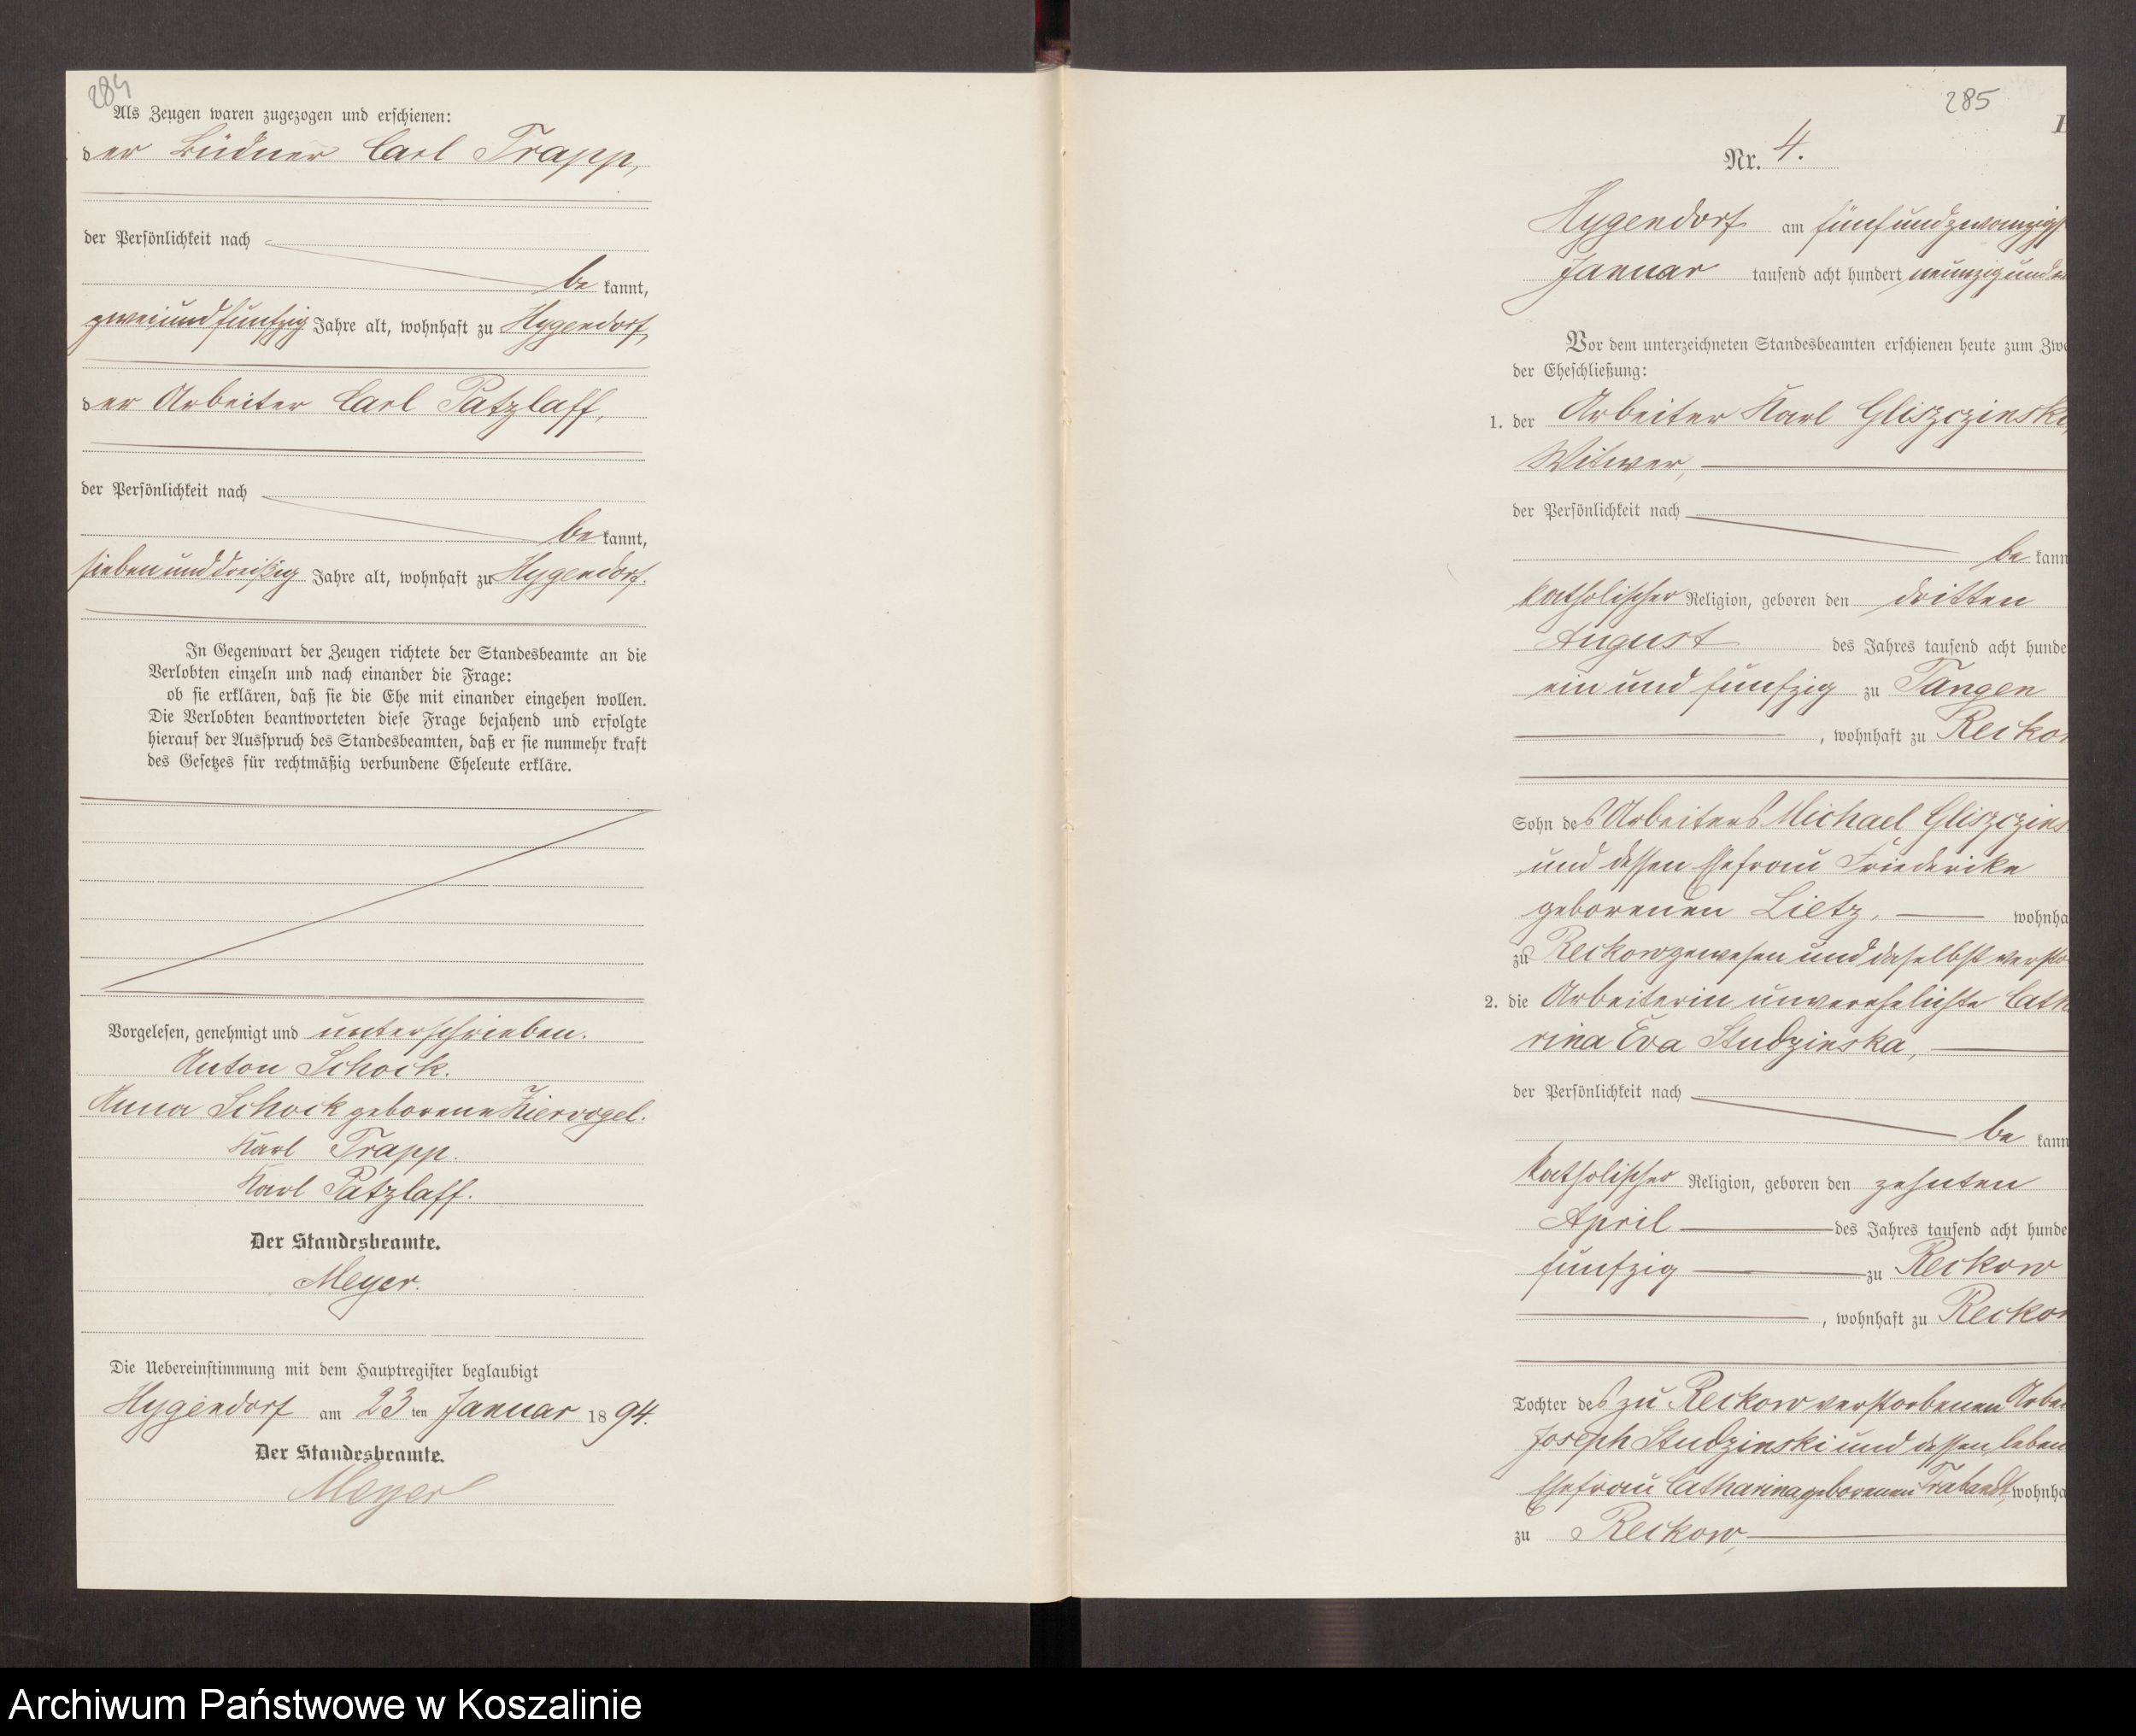 284
Als Zeugen waren zugezogen und erschienen:
der Büdner Carl Trapp,
der Persönlichkeit nach
be kannt,
zweiundfünfzig Jahre alt, wohnhaft zu Hygendorf,
der Arbeiter Carl Patzlaff,
der Persönlichkeit nach
be kannt,
siebenunddreißig Jahre alt, wohnhaft zu Hygendorf.
In Gegenwart der Zeugen richtete der Standesbeamte an die
Verlobten einzeln und nach einander die Frage:
ob sie erklären, daß sie die Ehe mit einander eingehen wollen.
Die Verlobten beantworteten diese Frage bejahend und erfolgte
hierauf der Ausspruch des Standesbeamten, daß er sie nunmehr kraft
des Gesetzes für rechtmäßig verbundene Eheleute erkläre.
Vorgelesen, genehmigt und unterschrieben.
Anton Schock.
Anna Schock geborene Ziervogel.
Karl Trapp.
Karl Patzlaff.
Der Standesbeamte.
Meyer.
Die Uebereinstimmung mit dem Hauptregister beglaubigt
Hygendorf am 23 ten Januar 1894.
Der Standesbeamte.
Meyer
285
Nr. 4.
Hygendorf am fünfundzwanzigst
Januar tausend acht hundert neunzig und
Vor dem unterzeichneten Standesbeamten erschienen heute zum Zwe
der Eheschließung:
1. der Arbeiter Karl Gliszczinski,
Witwer,
der Persönlichkeit nach
be kann
katholischer Religion, geboren den dritten
August des Jahres tausend acht hunde
ein und fünfzig zu Tangen
, wohnhaft zu Reckow
Sohn des Arbeiters Michael Gliszczins
und dessen Ehefrau Friederike
geborenen Lietz, wohnha
zu Reckow gewesen und daselbst versto
2. die Arbeiterin unverehelichte Cath
rina Eva Studzinska,
der Persönlichkeit nach
be kann
katholischer Religion, geboren den zehnten
April des Jahres tausend acht hunde
fünfzig zu Reckow
, wohnhaft zu Reckow
Tochter des zu Reckow verstorbenen Arbei
Joseph Studzinski und dessen leben
Ehefrau Catharina geborenen Trabandt, wohnha
zu Reckow,
Archiwum Państwowe w Koszalinie